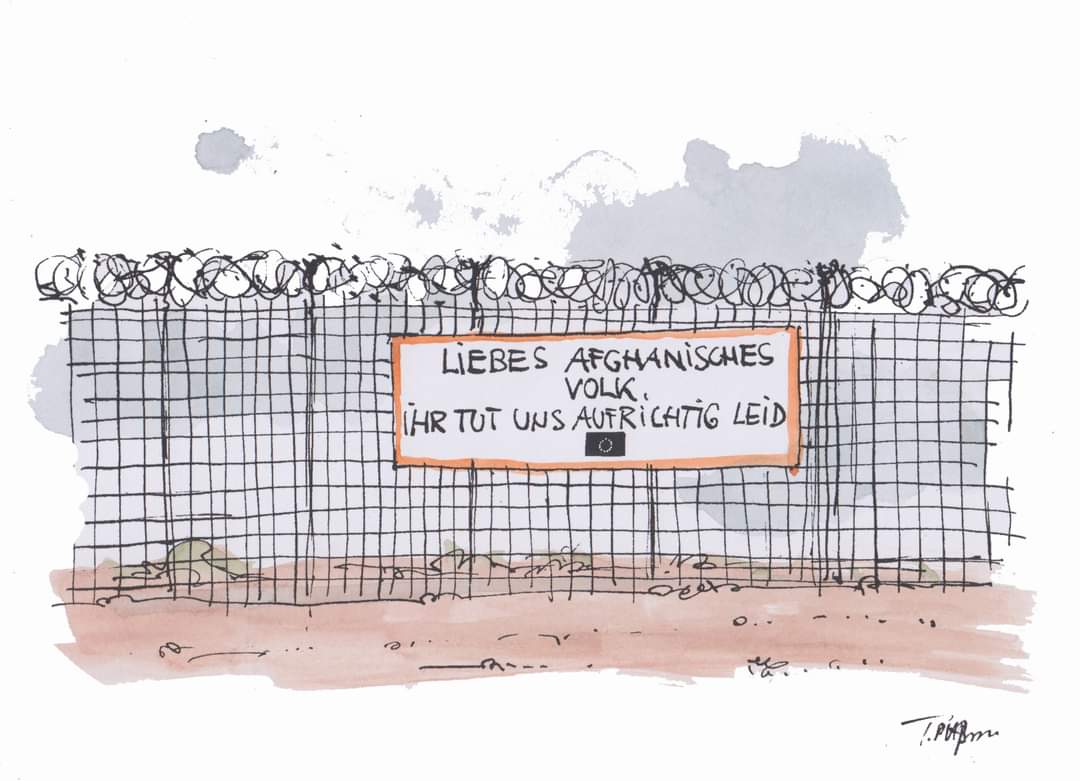 LIEBES AFGHANISCHES
VOLK.
IHR TUT UNS AUFRICHTIG LEID